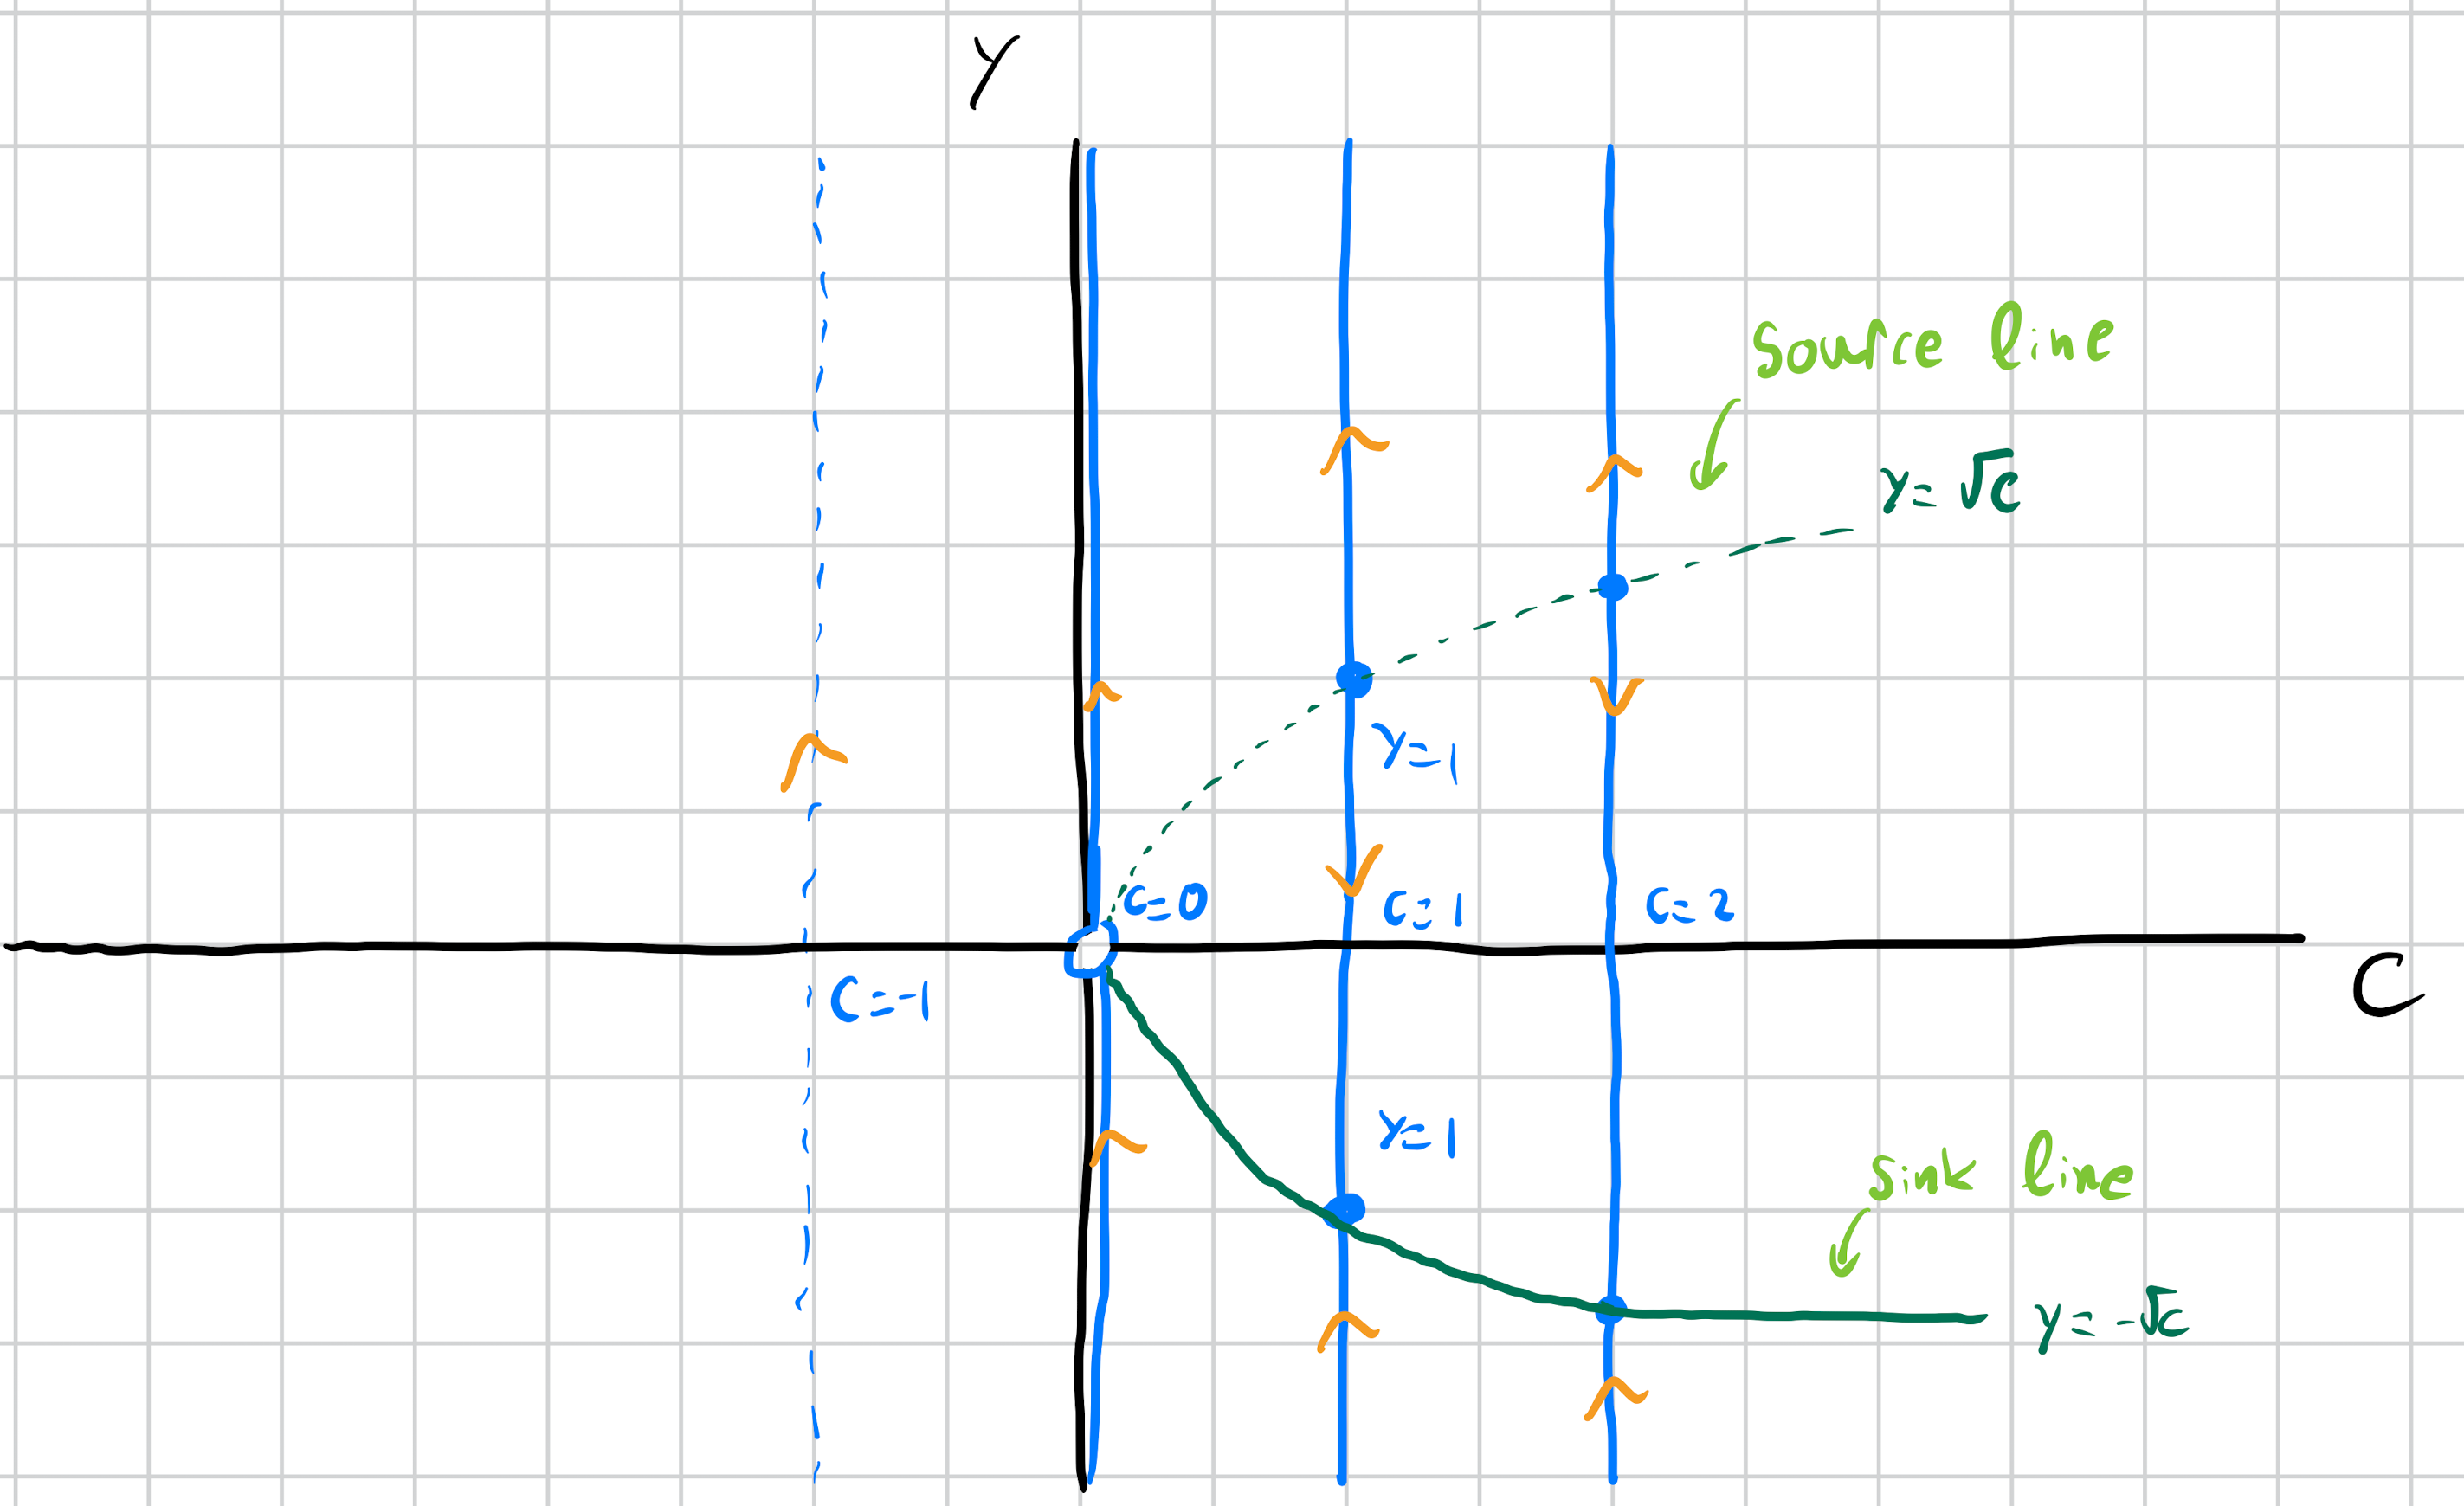 Y
source line
y = √c
y = 1
c = 0
c = 1
c = 2
c = -1
C
y = 1
sink line
y = -√c